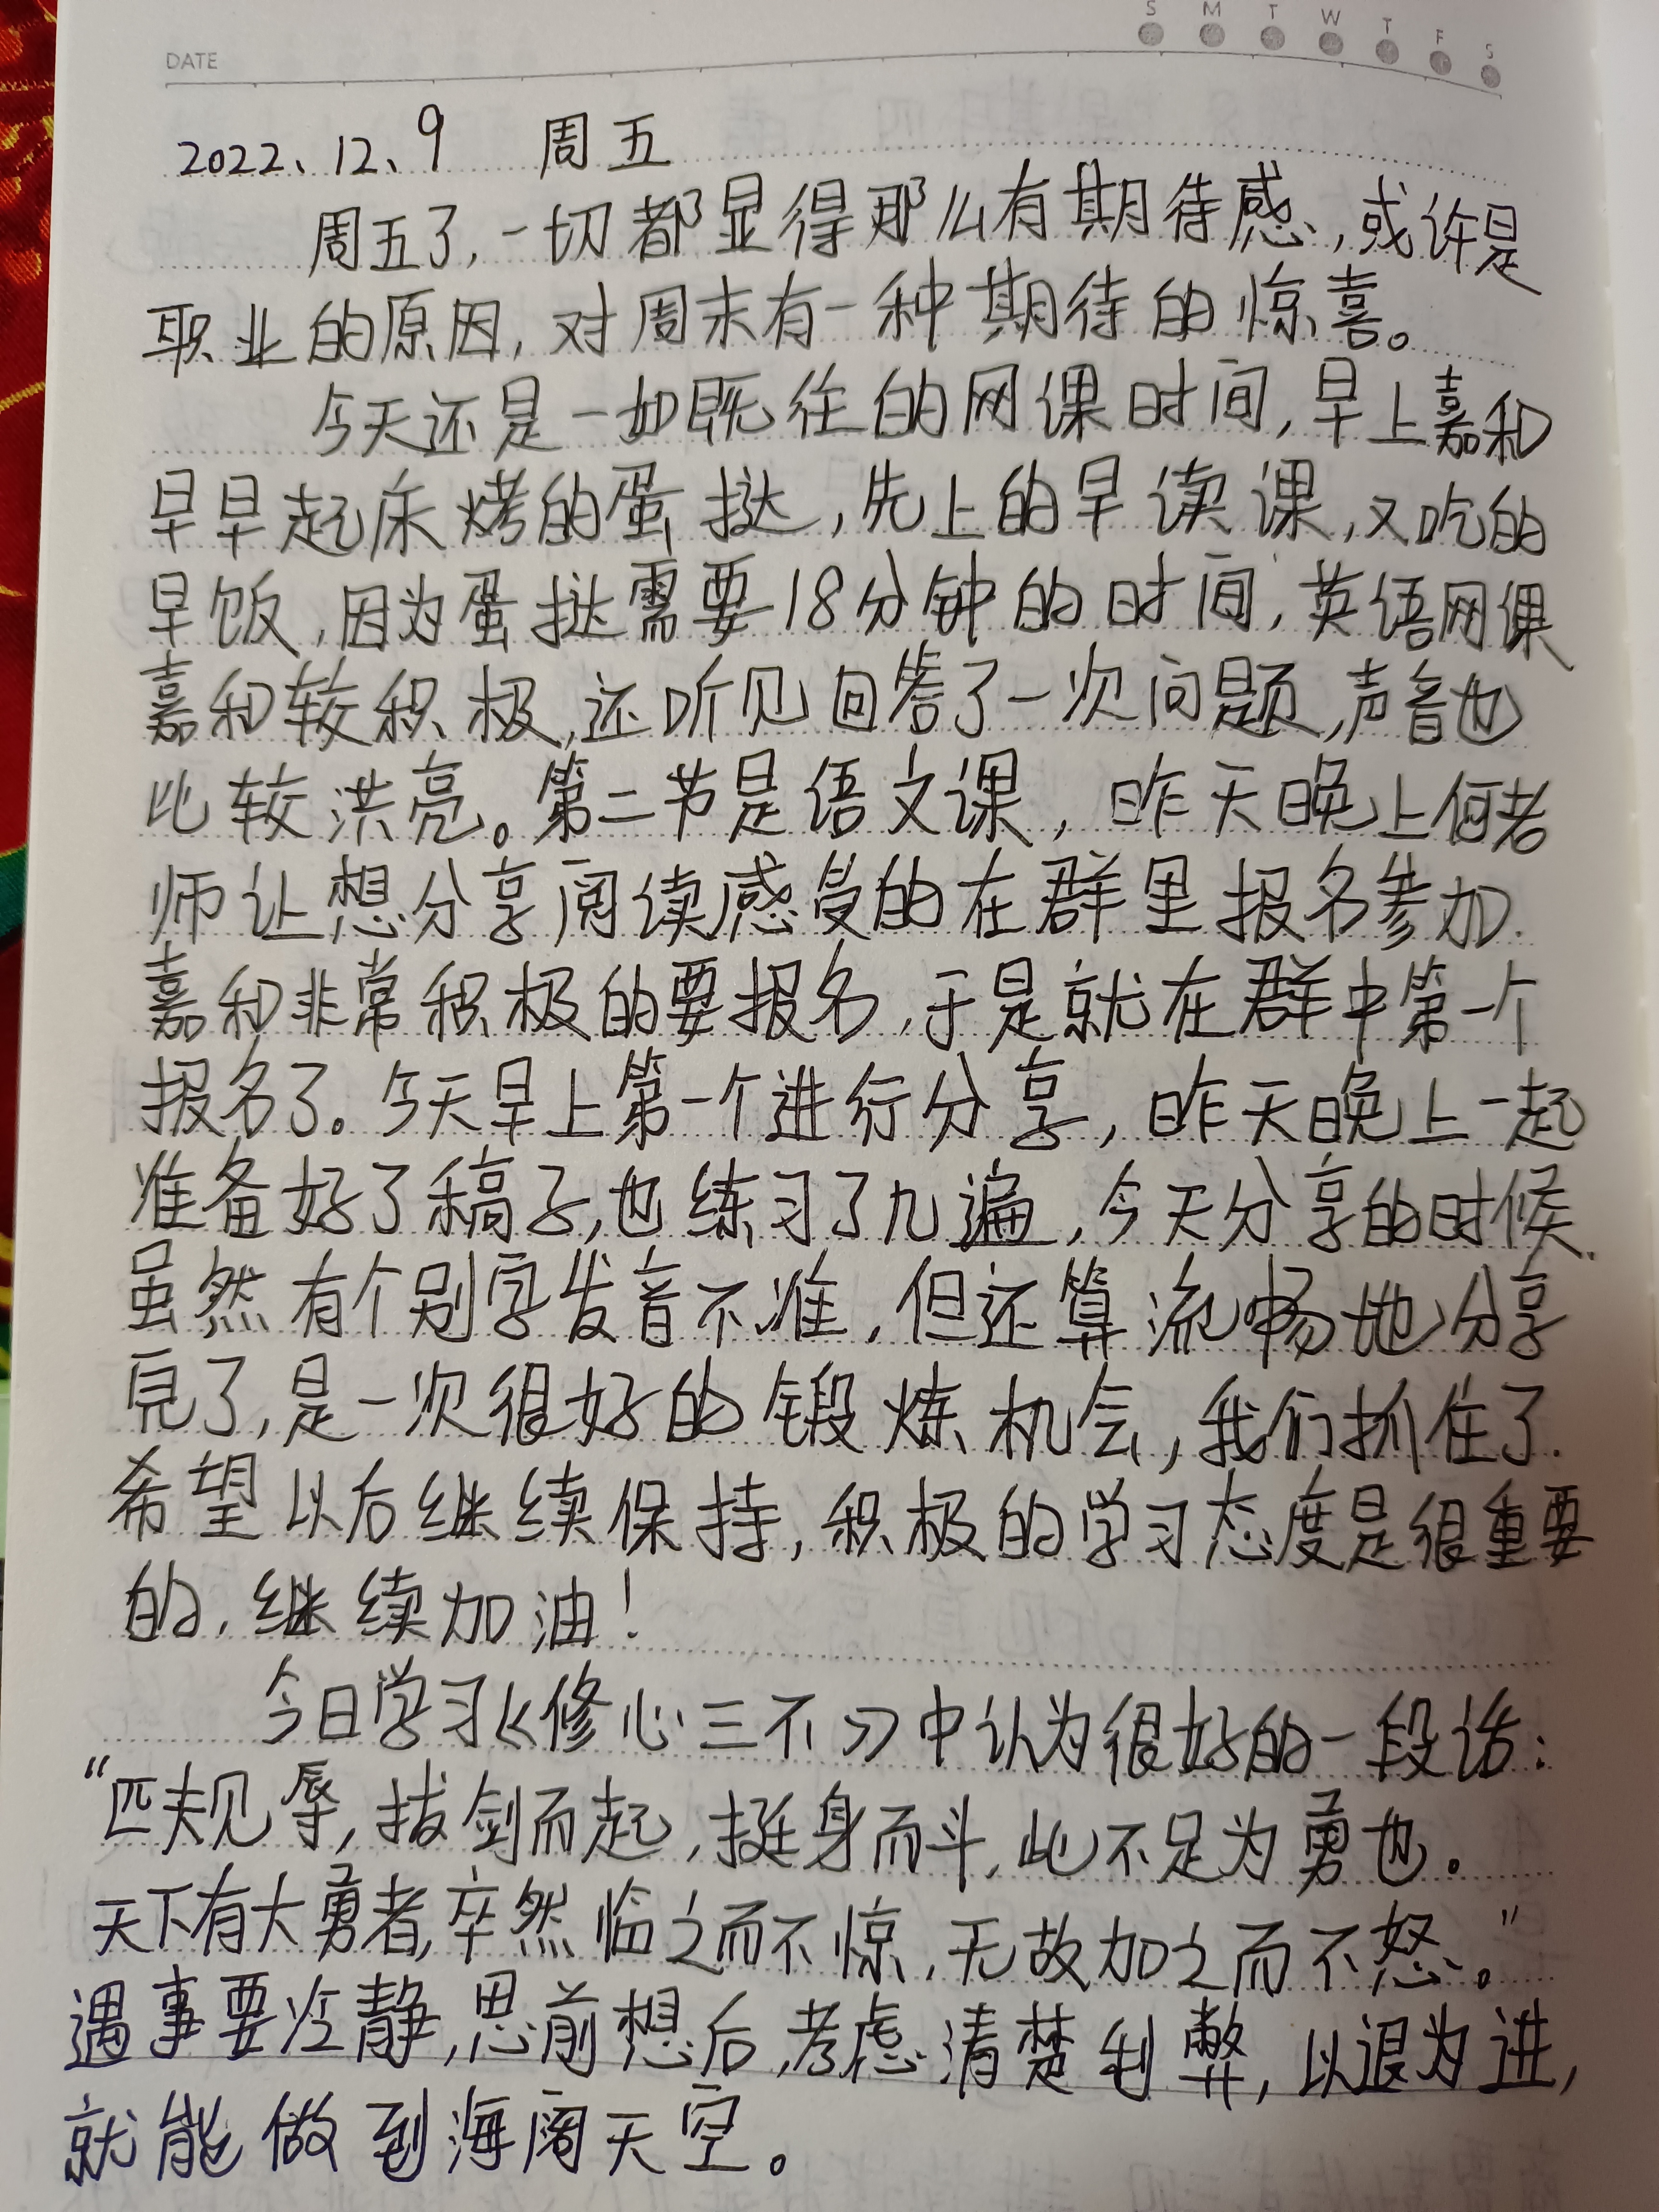 S M T W T F S
DATE
2022、12、9 周五
周五了,一切都显得那么有期待感,或许是
职业的原因,对周末有一种期待的惊喜。
今天还是一如既往的网课时间,早上嘉和
早早起床烤的蛋挞,先上的早读课,又吃的
早饭,因为蛋挞需要18分钟的时间,英语网课
嘉和较积极,还听见回答了一次问题,声音也
比较洪亮。第二节是语文课,昨天晚上何老
师让想分享阅读感受的在群里报名参加.
嘉和非常积极的要报名,于是就在群中第一个
报名了。今天早上第一个进行分享,昨天晚上一起
准备好了稿子,也练习了几遍,今天分享的时候.
虽然有个别字发音不准,但还算流畅地分享
完了,是一次很好的锻炼机会,我们抓住了.
希望以后继续保持,积极的学习态度是很重要
的,继续加油!
今日学习《修心三不》中认为很好的一段话:
“匹夫见辱,拔剑而起,挺身而斗,此不足为勇也。
天下有大勇者,卒然临之而不惊,无故加之而不怒。”
遇事要冷静,思前想后,考虑清楚利弊,以退为进,
就能做到海阔天空。